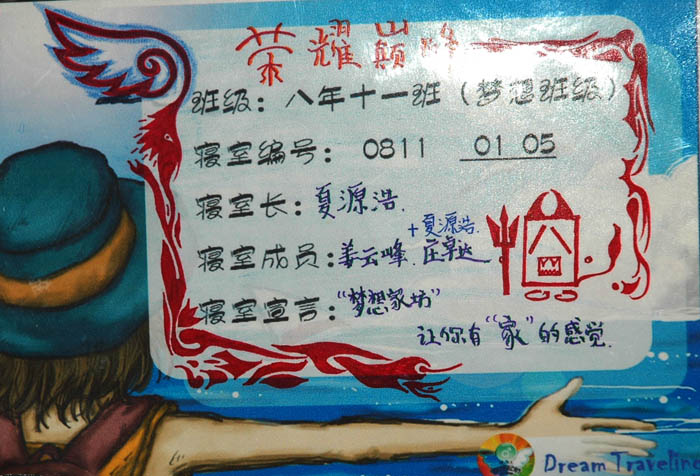 荣耀巅峰
班级：八年十一班（梦想班级）
寝室编号：0811 01 05
寝室长：夏源浩.
+夏源浩.
寝室成员：姜云峰.庄卓达
寝室宣言：“梦想家坊”
让你有“家”的感觉.
Dream Traveling